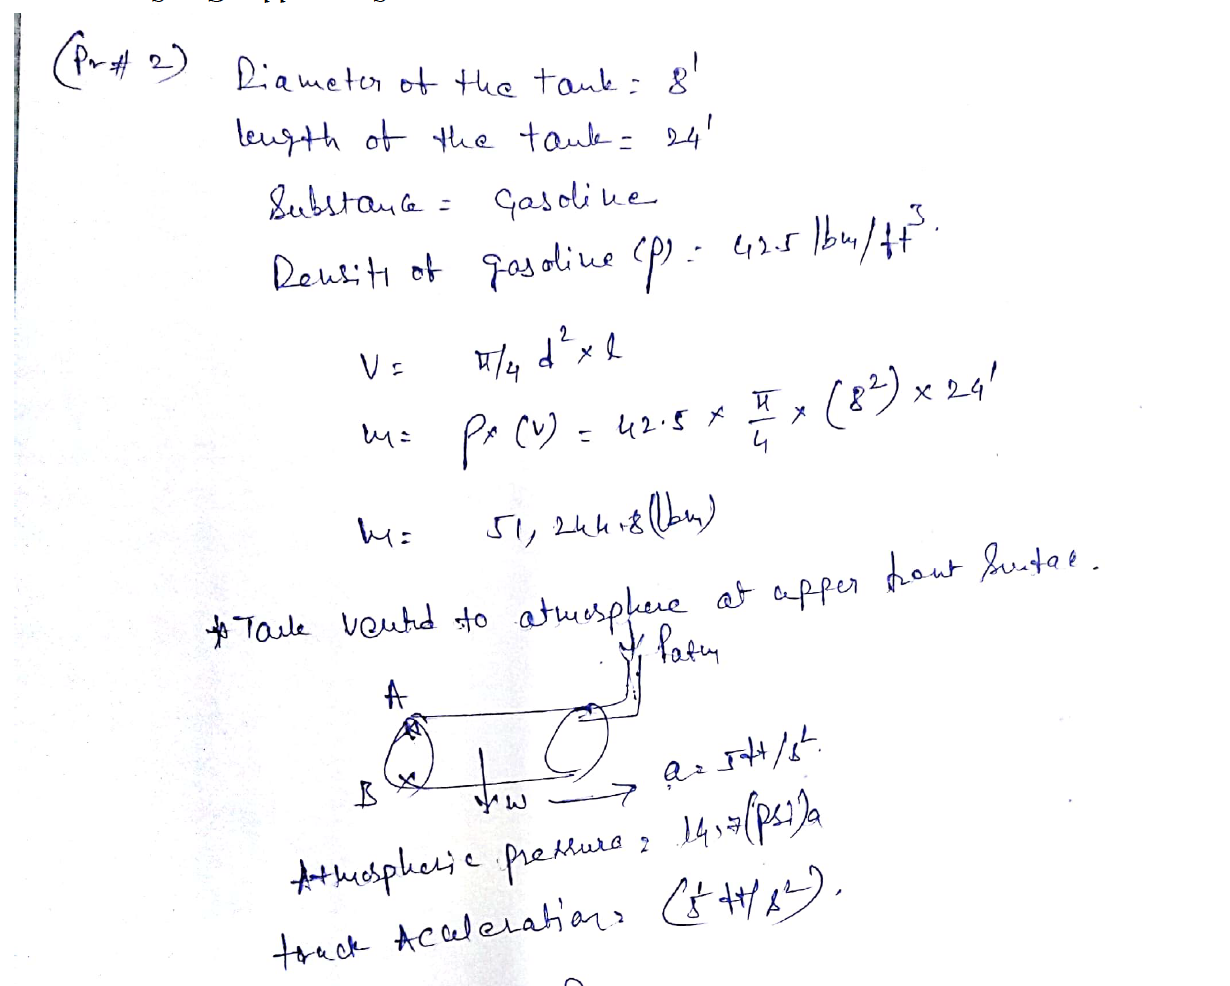 (Pr # 2)
Diameter of the tank = 8'
length of the tank = 24'
Substance = Gasoline
Densiti of gasoline (ρ) = 42.5 lbm/ft³.
V = π/4 d² × l
m = ρ × (V) = 42.5 × π/4 × (8²) × 24'
m = 51,244.8 (lbm)
* Tank vented to atmosphere at upper front Surface.
Patm
A
B
w
a = 5 ft/s².
Atmospheric pressure = 14.7 (psi)a
truck Acceleration = (5 ft/s²).